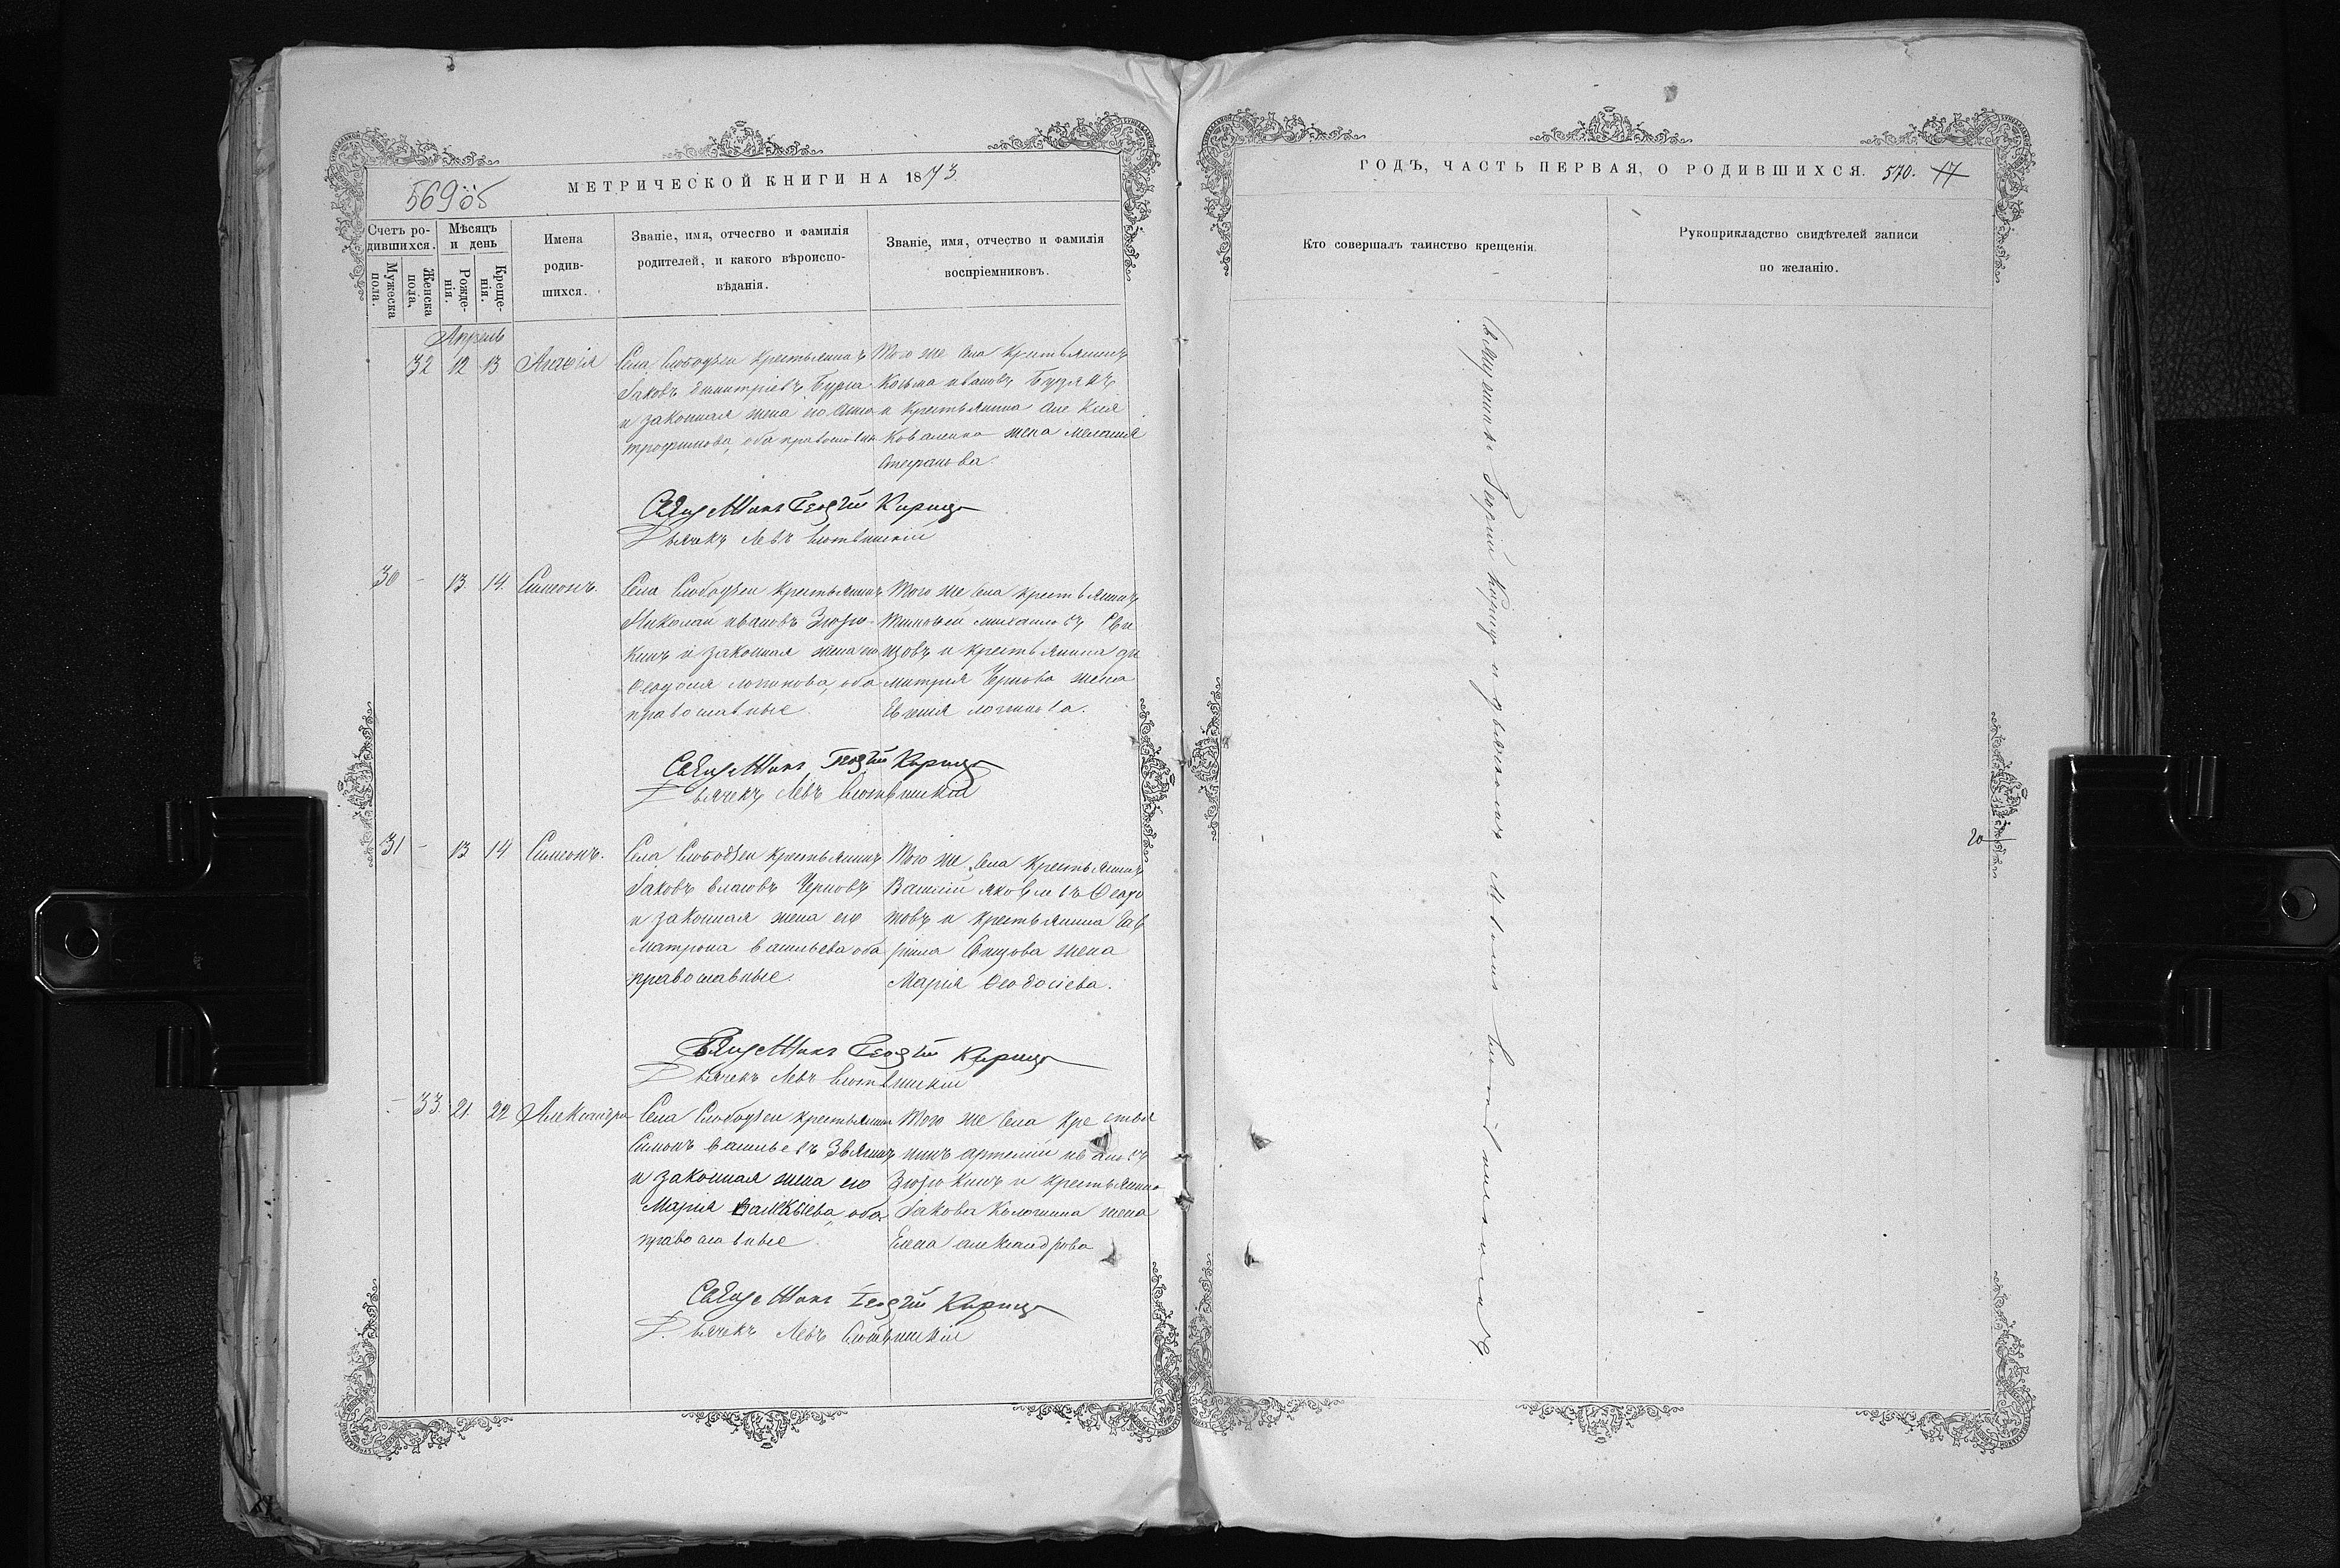 569об
МЕТРИЧЕСКОЙ КНИГИ НА 1873.
Счетъ ро-
дившихся.
Мужеска
пола.
Женска
пола.
Мѣсяцъ
и день
Рожде-
нія.
Креще-
нія.
Имена
родив-
шихся.
Званіе, имя, отчество и фамилія
родителей, и какого вѣроиспо-
вѣданія.
Званіе, имя, отчество и фамилія
воспріемниковъ.
Апрѣль
32 12 13 Агафія
Села Слободзеи Крестьянинъ
Іаковъ Димитріевъ Бурла
и законная жена его Анна
Трофимова, оба православн
Того же Села Крестьянинъ
Косьма Ивановъ
и Крестьянина
Коваленка жена Мелания
Стефанова.
Священникъ Георгій Кирица
Дьячекъ Левъ
30 - 13 14. Симеонъ.
Села Слободзеи Крестьянинъ
Николай Ивановъ Зюзю-
кинъ и законная жена его
Феодосия Логинова, оба
православные.
Того же Села Крестьянинъ
Тимофей Михаиловъ Сви
щовъ и Крестьянина Ди
митрия Чернова жена
Евгения Логинова.
Священникъ Георгій Кирица
Дьячекъ Левъ
31 - 13 14 Симеонъ.
Села Слободзеи Крестьянинъ
Іаковъ Власовъ Черновъ
и законная жена его
Матрона Васильева оба
православные.
Того же Села Крестьянинъ
Василий Яковлевъ Федо
товъ и Крестьянина Гав
риила Свищова жена
Мария Феодосіева.
Священникъ Георгій Кирица
Дьячекъ Левъ
- 33. 21. 22 Александра
Села Слободзеи Крестьянинъ
Симонъ Васильевъ
и законная жена его
Мария оба
православные.
Того же Села Кре стья
нинъ Артемий Ивановъ
Зюзюкинъ и Крестьянина
Іакова жена
Елена Александрова
Священникъ Георгій Кирица
Дьячекъ Левъ
ГОДЪ, ЧАСТЬ ПЕРВАЯ, О РОДИВШИХСЯ. 570. 17
Кто совершалъ таинство крещенія.
Рукоприкладство свидѣтелей записи
по желанію.
Священникъ Георгій Кириц и
20